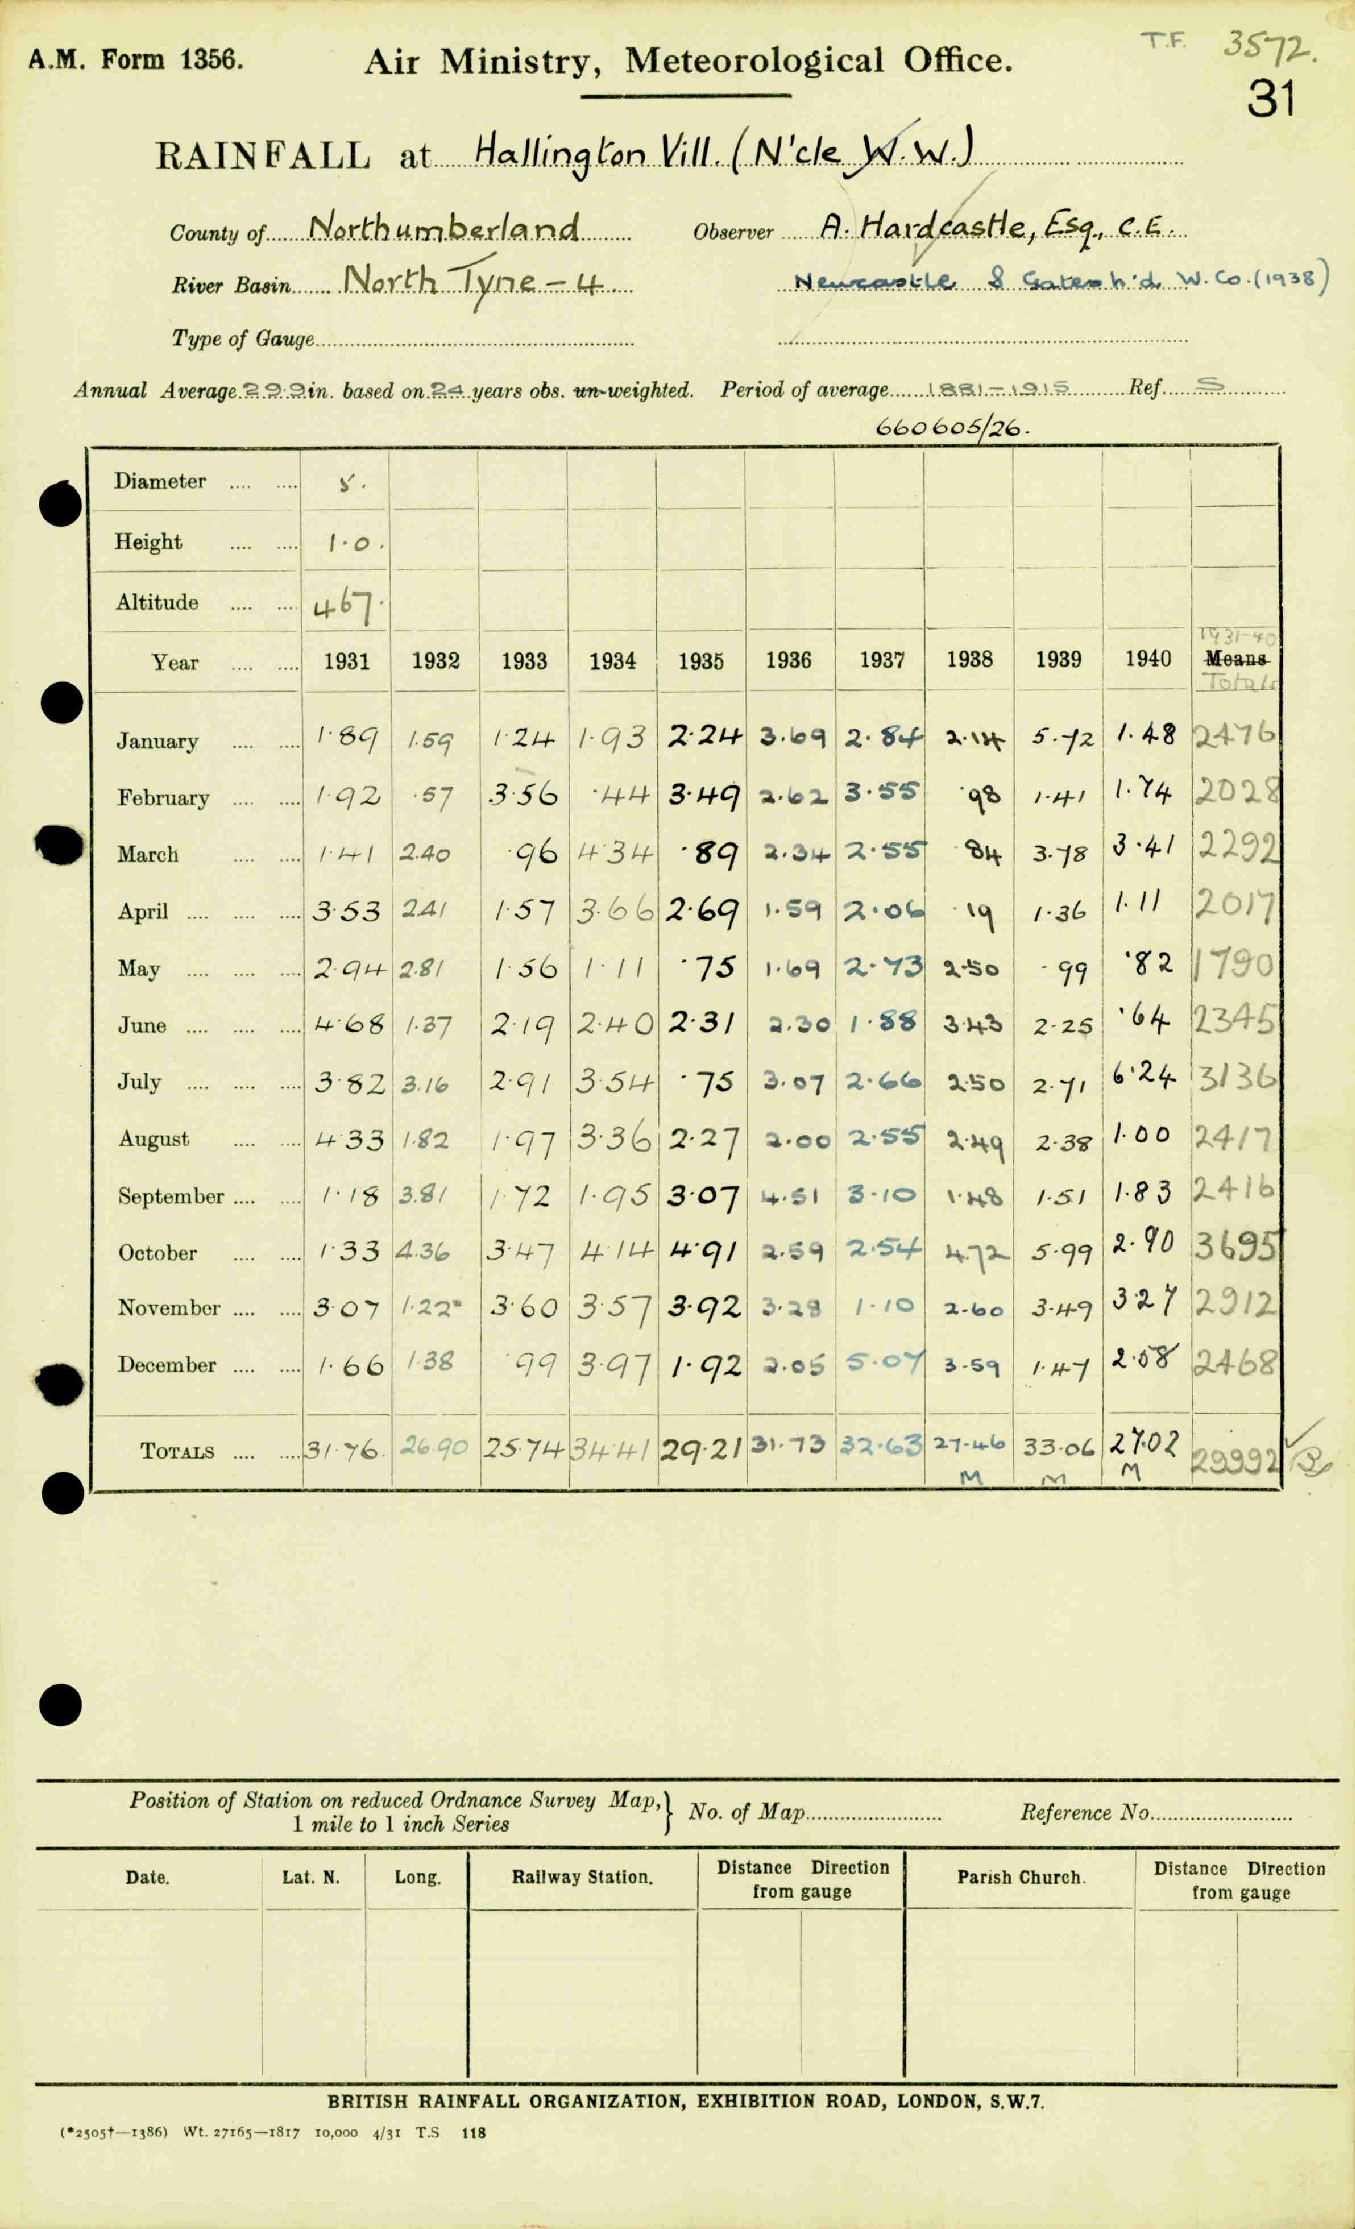 T.F. 3572.
A.M. Form 1356. Air Ministry, Meteorological Office.
31
RAINFALL at Hallington Vill. (N'cle W.W.)
County of Northumberland Observer A. Hardcastle, Esq., C.E.
River Basin North Tyne - 4 Newcastle & Gatesh'd W. Co. (1938)
Type of Gauge
Annual Average 29.9 in. based on 24 years obs. un-weighted. Period of average 1881-1915 Ref. S
660605/26.
Diameter 5.
Height 1.0.
Altitude 467.
1931-40
Year 1931 1932 1933 1934 1935 1936 1937 1938 1939 1940 Means
Totals
January 1.89 1.59 1.24 1.93 2.24 3.69 2.84 2.14 5.72 1.48 2476
February 1.92 .57 3.56 .44 3.49 2.62 3.55 .98 1.41 1.74 2028
March 1.41 2.40 .96 4.34 .89 2.34 2.55 .84 3.78 3.41 2292
April 3.53 2.41 1.57 3.66 2.69 1.59 2.06 .19 1.36 1.11 2017
May 2.94 2.81 1.56 1.11 .75 1.69 2.73 2.50 .99 .82 1790
June 4.68 1.37 2.19 2.40 2.31 2.30 1.88 3.43 2.25 .64 2345
July 3.82 3.16 2.91 3.54 .75 3.07 2.66 2.50 2.71 6.24 3136
August 4.33 1.82 1.97 3.36 2.27 2.00 2.55 2.49 2.38 1.00 2417
September 1.18 3.81 1.72 1.95 3.07 4.51 3.10 1.48 1.51 1.83 2416
October 1.33 4.36 3.47 4.14 4.91 2.59 2.54 4.72 5.99 2.90 3695
November 3.07 1.22 3.60 3.57 3.92 3.28 1.10 2.60 3.49 3.27 2912
December 1.66 1.38 .99 3.97 1.92 2.05 5.07 3.59 1.47 2.58 2468
TOTALS 31.76 26.90 25.74 34.41 29.21 31.73 32.63 27.46 33.06 27.02 29992
M M M
Position of Station on reduced Ordnance Survey Map, } No. of Map Reference No.
1 mile to 1 inch Series
Date. Lat. N. Long. Railway Station. Distance Direction Parish Church. Distance Direction
from gauge from gauge
BRITISH RAINFALL ORGANIZATION, EXHIBITION ROAD, LONDON, S.W.7.
(*2505†—1386) Wt. 27165—1817 10,000 4/31 T.S 118